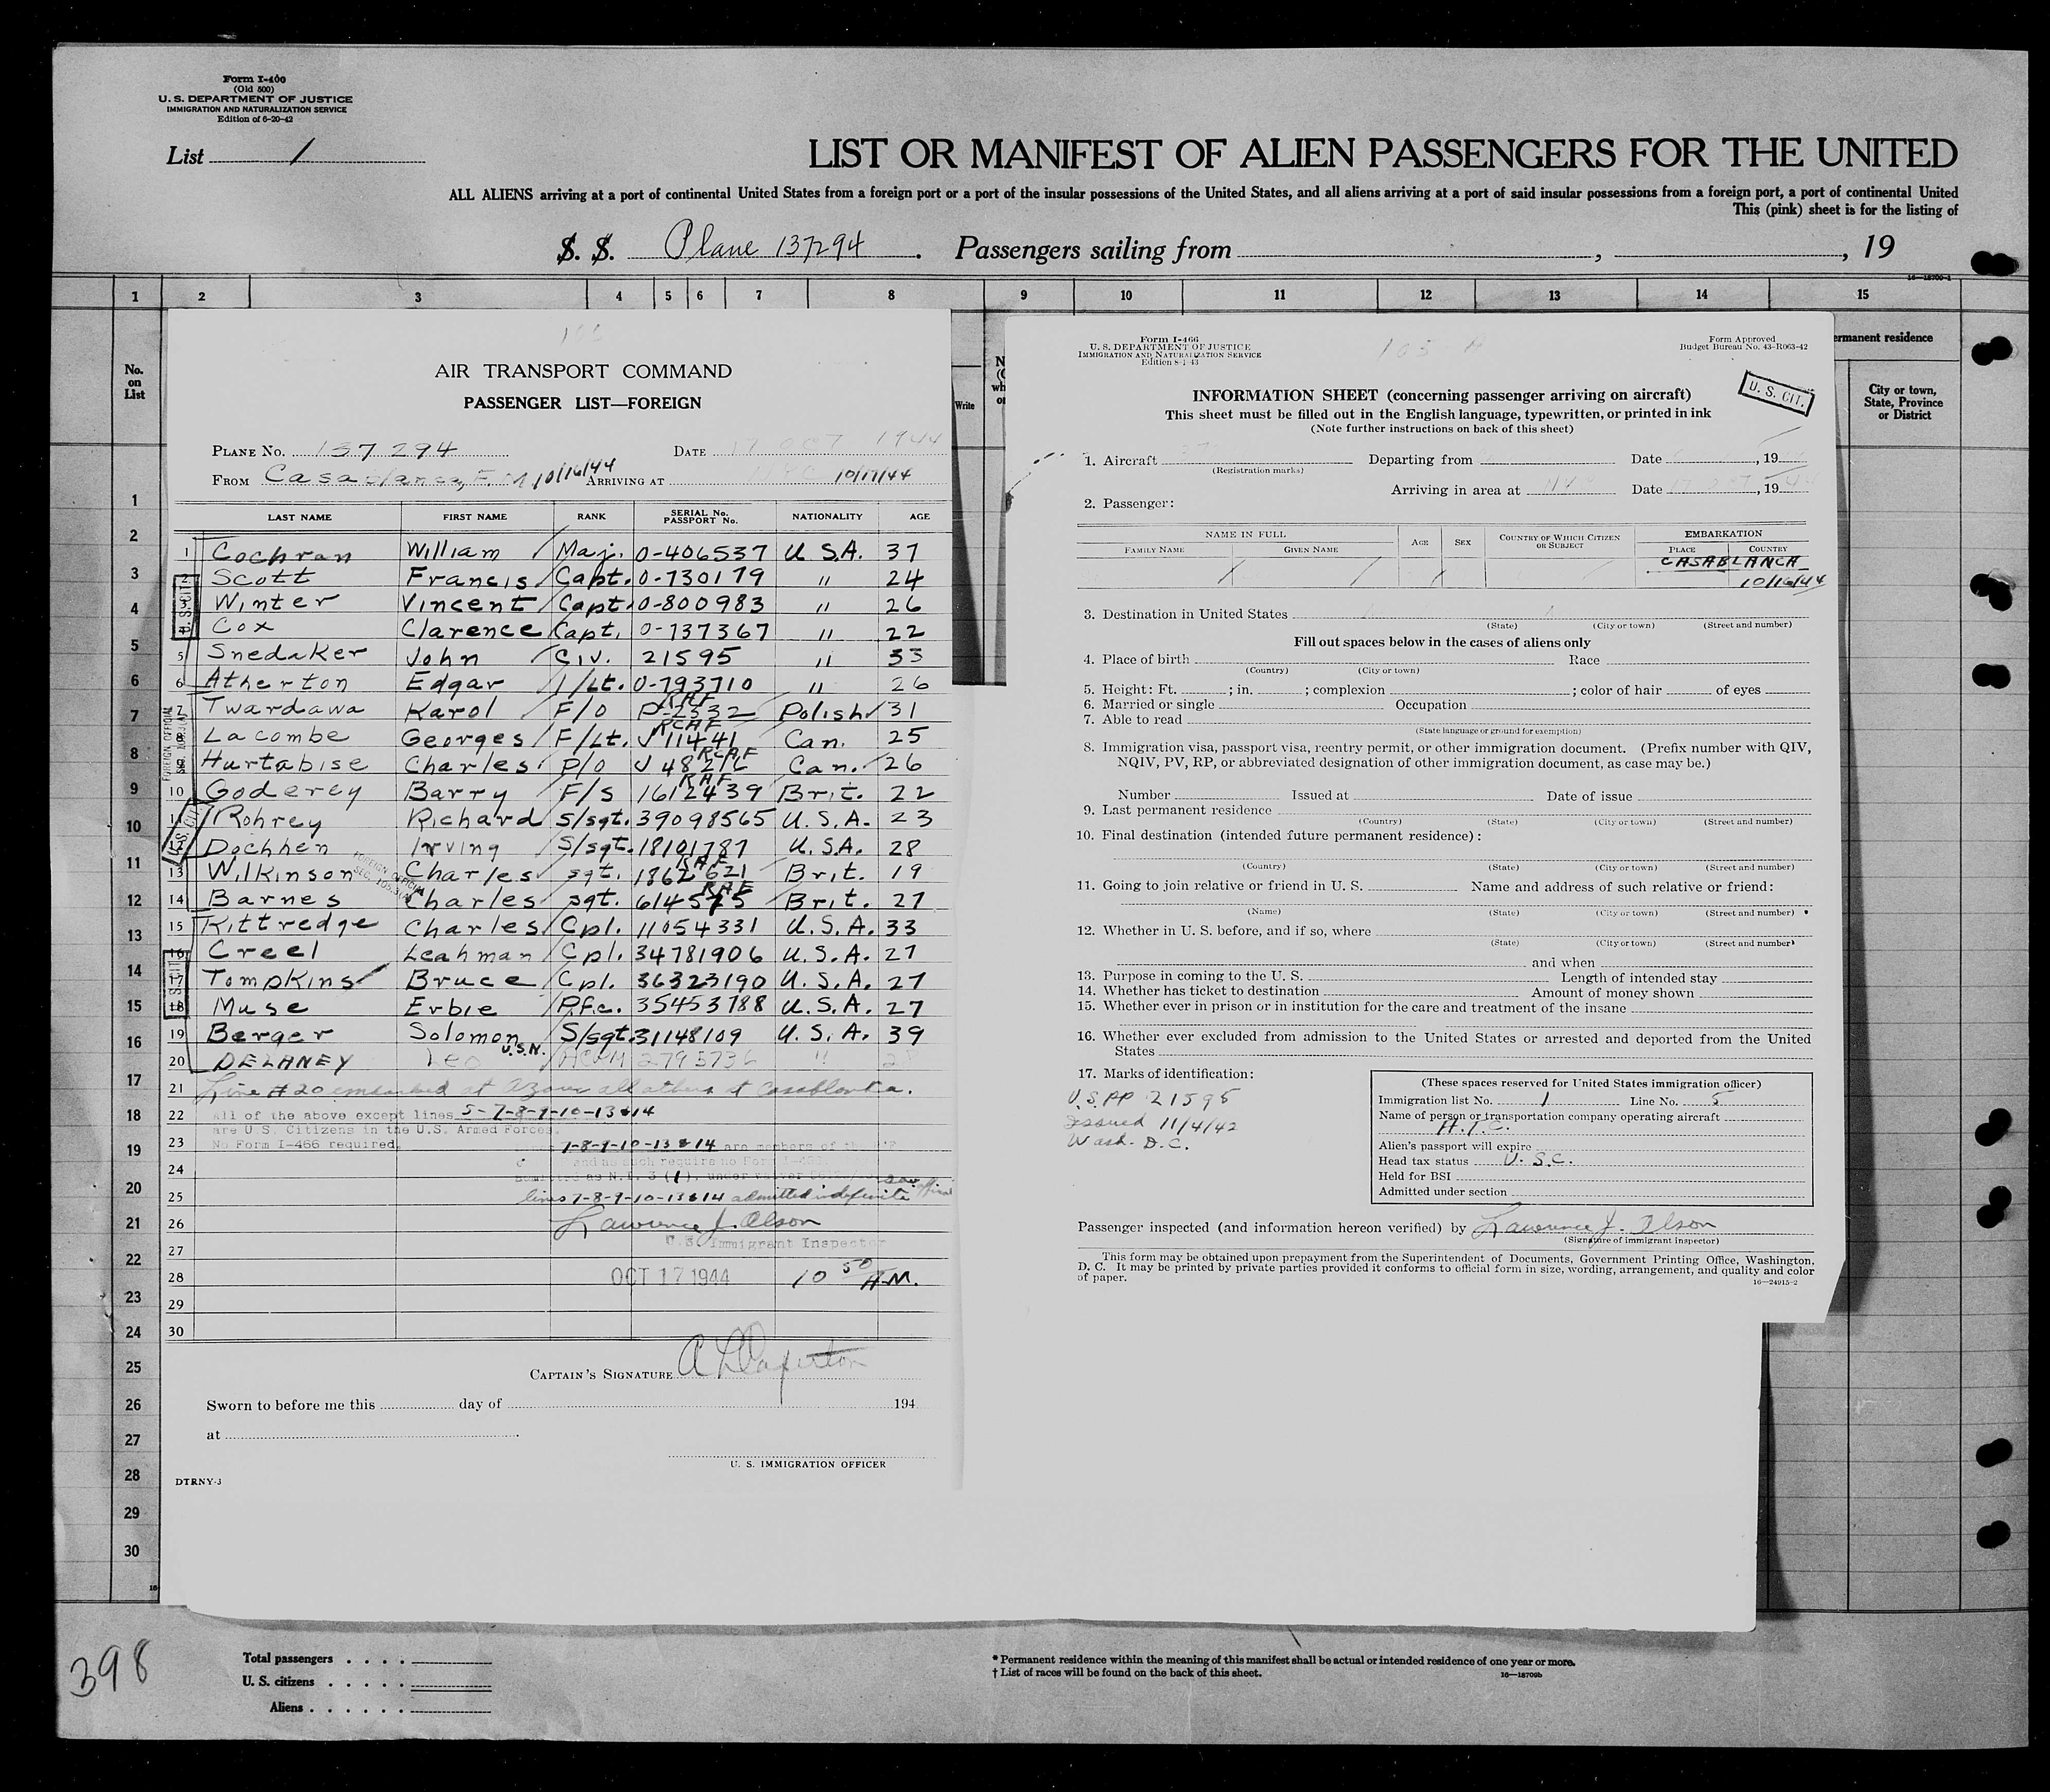 Form I-400
(Old 500)
U. S. DEPARTMENT OF JUSTICE
IMMIGRATION AND NATURALIZATION SERVICE
Edition of 6-20-42
List 1
LIST OR MANIFEST OF ALIEN PASSENGERS FOR THE UNITED
ALL ALIENS arriving at a port of continental United States from a foreign port or a port of the insular possessions of the United States, and all aliens arriving at a port of said insular possessions from a foreign port, a port of continental United
This (pink) sheet is for the listing of
S. S. Plane 137294. Passengers sailing from , , 19
1 2 3 4 5 6 7 8 9 10 11 12 13 14 15
No. on List
Write
ermanent residence
City or town, State, Province or District
AIR TRANSPORT COMMAND
PASSENGER LIST—FOREIGN
PLANE No. 137294 DATE 17 OCT 1944
FROM Casablanca, F. M 10/16/44 ARRIVING AT 10/17/44
LAST NAME FIRST NAME RANK SERIAL No. PASSPORT No. NATIONALITY AGE
1 Cochran William Maj. O-406537 U.S.A. 37
2 Scott Francis Capt. O-730179 " 24
3 Winter Vincent Capt. O-800983 " 26
4 Cox Clarence Capt. O-737367 " 22
5 Snedaker John Civ. 21595 " 33
6 Atherton Edgar 1/Lt. O-793710 " 26
7 Twardawa Karol F/O P-2332 RAF Polish 31
8 Lacombe Georges F/Lt. J 11441 RCAF Can. 25
9 Hurtabise Charles P/O J 48216 RCAF Can. 26
10 Goderey Barry F/S 1612439 RAF Brit. 22
11 Rohrey Richard S/sgt. 39098565 U.S.A. 23
12 Dochhen Irving S/sgt. 18101787 U.S.A. 28
13 Wilkinson Charles sgt. 1862621 RAF Brit. 19
14 Barnes Charles sgt. 614575 RAF Brit. 27
15 Kittredge Charles Cpl. 11054331 U.S.A. 33
16 Creel Leahman Cpl. 34781906 U.S.A. 27
17 Tompkins Bruce Cpl. 36323190 U.S.A. 27
18 Muse Erbie Pfc. 35453788 U.S.A. 27
19 Berger Solomon S/sgt. 31148109 U.S.A. 39
20 DELANEY Leo U.S.N. ACMM 2795736 "
21 Line #20 embarked at Azores all others at Casablanca.
22 All of the above except lines 5-7-8-9-10-13&14
are U.S. Citizens in the U.S. Armed Forces.
23 No Form I-466 required. 7-8-9-10-13&14 are members of the
24 and as such require no Form I-466
admitted as N.I. 3(1), under waiver
25 lines 7-8-9-10-13&14 admitted indefinite
26 Lawrence J. Olson
27 U.S. Immigrant Inspector
28 OCT 17 1944 10 50 A.M.
29
30
CAPTAIN'S SIGNATURE
Sworn to before me this day of 194
at
U. S. IMMIGRATION OFFICER
DTRNY-3
U.S. CIT.
FOREIGN OFFICIAL
Form I-466
U. S. DEPARTMENT OF JUSTICE
IMMIGRATION AND NATURALIZATION SERVICE
Edition 8-1-43
105-A
Form Approved
Budget Bureau No. 43-R063-42
U. S. CIT.
INFORMATION SHEET (concerning passenger arriving on aircraft)
This sheet must be filled out in the English language, typewritten, or printed in ink
(Note further instructions on back of this sheet)
1. Aircraft Departing from Date , 19
(Registration marks)
Arriving in area at Date , 19
2. Passenger:
NAME IN FULL AGE SEX COUNTRY OF WHICH CITIZEN OR SUBJECT EMBARKATION
FAMILY NAME GIVEN NAME PLACE COUNTRY
CASABLANCA
10/16/44
3. Destination in United States
(State) (City or town) (Street and number)
Fill out spaces below in the cases of aliens only
4. Place of birth Race
(Country) (City or town)
5. Height: Ft. ; in. ; complexion ; color of hair of eyes
6. Married or single Occupation
7. Able to read
(State language or ground for exemption)
8. Immigration visa, passport visa, reentry permit, or other immigration document. (Prefix number with QIV,
NQIV, PV, RP, or abbreviated designation of other immigration document, as case may be.)
Number Issued at Date of issue
9. Last permanent residence
(Country) (State) (City or town) (Street and number)
10. Final destination (intended future permanent residence):
(Country) (State) (City or town) (Street and number)
11. Going to join relative or friend in U. S. Name and address of such relative or friend:
(Name) (State) (City or town) (Street and number)
12. Whether in U. S. before, and if so, where
(State) (City or town) (Street and number)
and when
13. Purpose in coming to the U. S. Length of intended stay
14. Whether has ticket to destination Amount of money shown
15. Whether ever in prison or in institution for the care and treatment of the insane
16. Whether ever excluded from admission to the United States or arrested and deported from the United
States
17. Marks of identification:
U.S. PP 21595
Issued 11/4/42
Wash. D.C.
(These spaces reserved for United States immigration officer)
Immigration list No. 1 Line No. 5
Name of person or transportation company operating aircraft
A.T.C.
Alien's passport will expire
Head tax status U.S.C.
Held for BSI
Admitted under section
Passenger inspected (and information hereon verified) by Lawrence J. Olson
(Signature of immigrant inspector)
This form may be obtained upon prepayment from the Superintendent of Documents, Government Printing Office, Washington,
D. C. It may be printed by private parties provided it conforms to official form in size, wording, arrangement, and quality and color
of paper.
16—24915-2
1
2
3
4
5
6
7
8
9
10
11
12
13
14
15
16
17
18
19
20
21
22
23
24
25
26
27
28
29
30
398
Total passengers
U. S. citizens
Aliens
* Permanent residence within the meaning of this manifest shall be actual or intended residence of one year or more.
† List of races will be found on the back of this sheet.
16—18709b